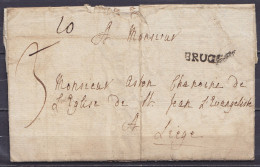 10
A Monsieur
BRUGES
Monsieur Aston Chanoine de
L'Eglise de St Jean L'Evangeliste
A
Liege